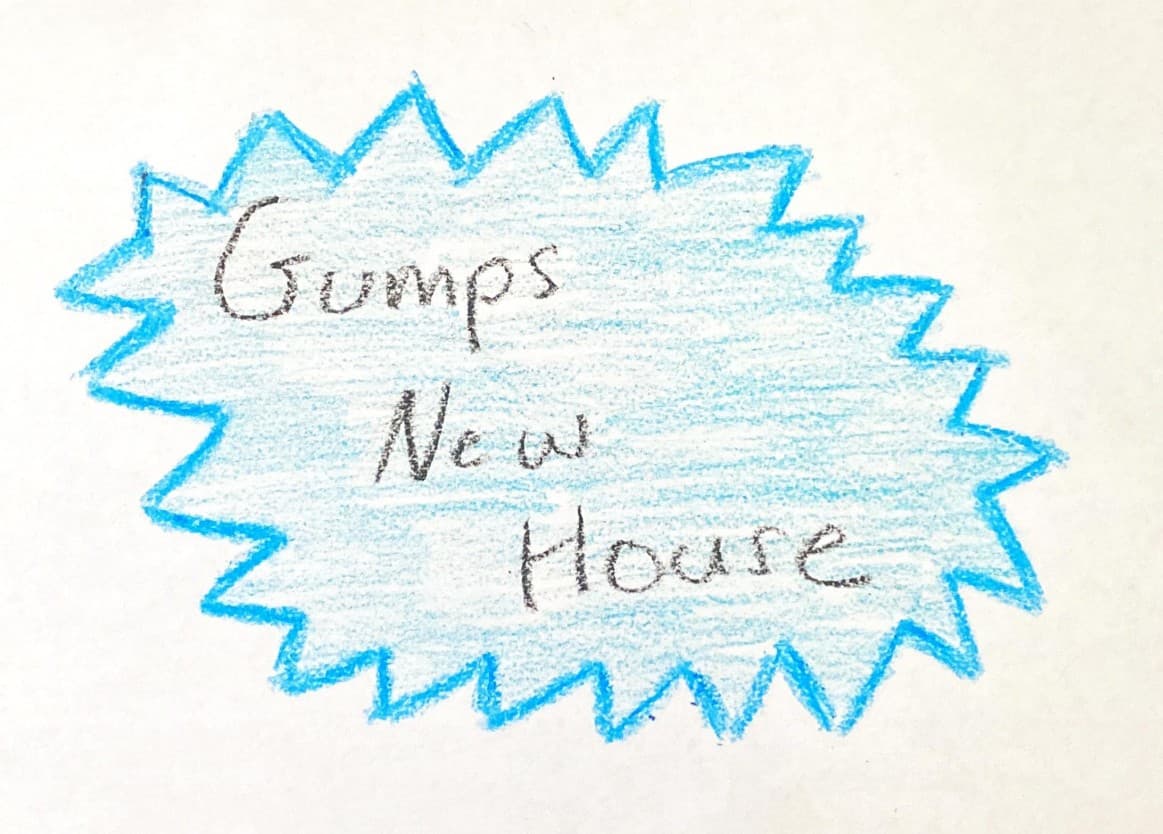 Gumps
New
House